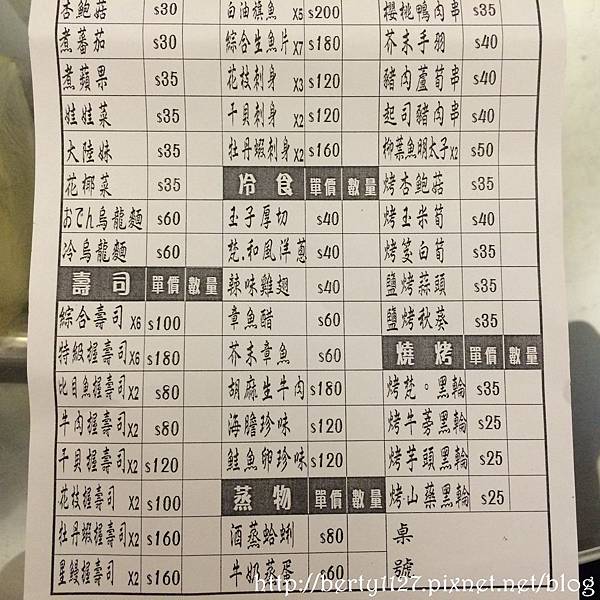 杏鮑菇 $30
煮蕃茄 $30
煮蘋果 $35
娃娃菜 $35
大陸妹 $35
花椰菜 $35
おでん烏龍麵 $60
冷烏龍麵 $60
壽司 單價 數量
綜合壽司 X6 $100
特級握壽司 X6 $180
比目魚握壽司 X2 $80
牛肉握壽司 X2 $80
干貝握壽司 X2 $120
花枝握壽司 X2 $100
牡丹蝦握壽司 X2 $160
星鰻握壽司 X2 $160
白油旗魚 X5 $200
綜合生魚片 X7 $180
花枝刺身 X3 $120
干貝刺身 X2 $120
牡丹蝦刺身 X2 $160
冷食 單價 數量
玉子厚切 $40
梵.和風洋蔥 $40
辣味雞翅 $40
章魚醋 $60
芥末章魚 $60
胡麻生牛肉 $180
海膽珍味 $120
鮭魚卵珍味 $120
蒸物 單價 數量
酒蒸蛤蜊 $80
牛奶蒸蛋 $60
櫻桃鴨肉串 $35
芥末手羽 $40
豬肉蘆筍串 $40
起司豬肉串 $40
柳葉魚明太子 X2 $50
烤杏鮑菇 $35
烤玉米筍 $40
烤筊白筍 $35
鹽烤蒜頭 $35
鹽烤秋葵 $35
燒烤 單價 數量
烤梵。黑輪 $35
烤牛蒡黑輪 $25
烤芋頭黑輪 $25
烤山藥黑輪 $25
桌號
http://berty1127.pixnet.net/blog